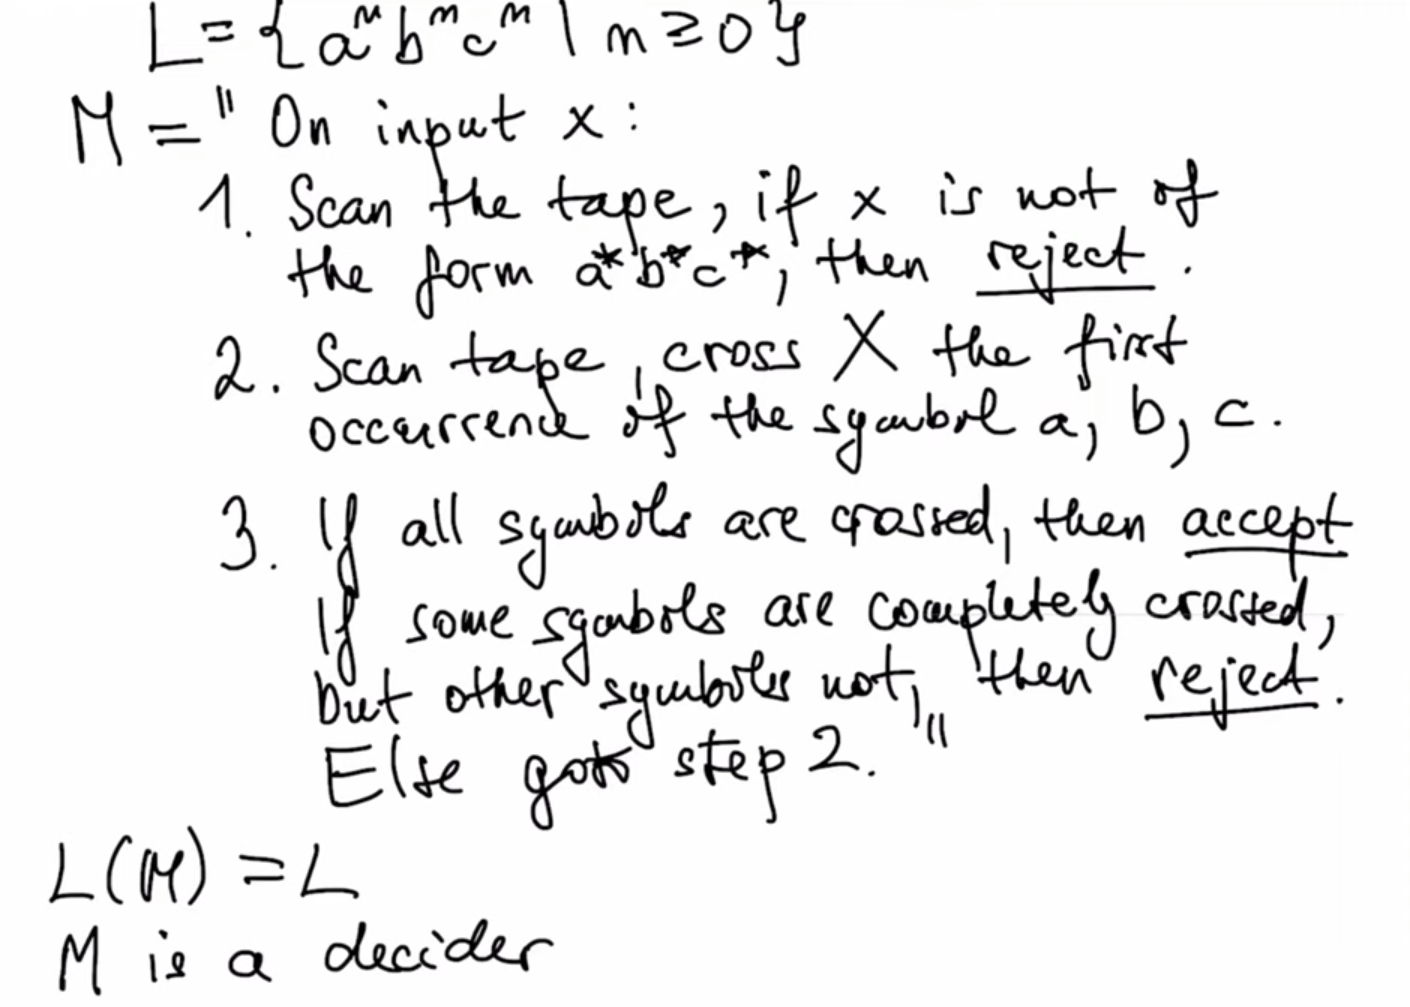 L = {aⁿbⁿcⁿ | n ≥ 0}
M = " On input x :
1. Scan the tape, if x is not of
the form a*b*c*, then reject.
2. Scan tape, cross X the first
occurrence of the symbol a, b, c.
3. If all symbols are crossed, then accept
If some symbols are completely crossed,
but other symbols not, then reject.
Else goto step 2. "
L(M) = L
M is a decider